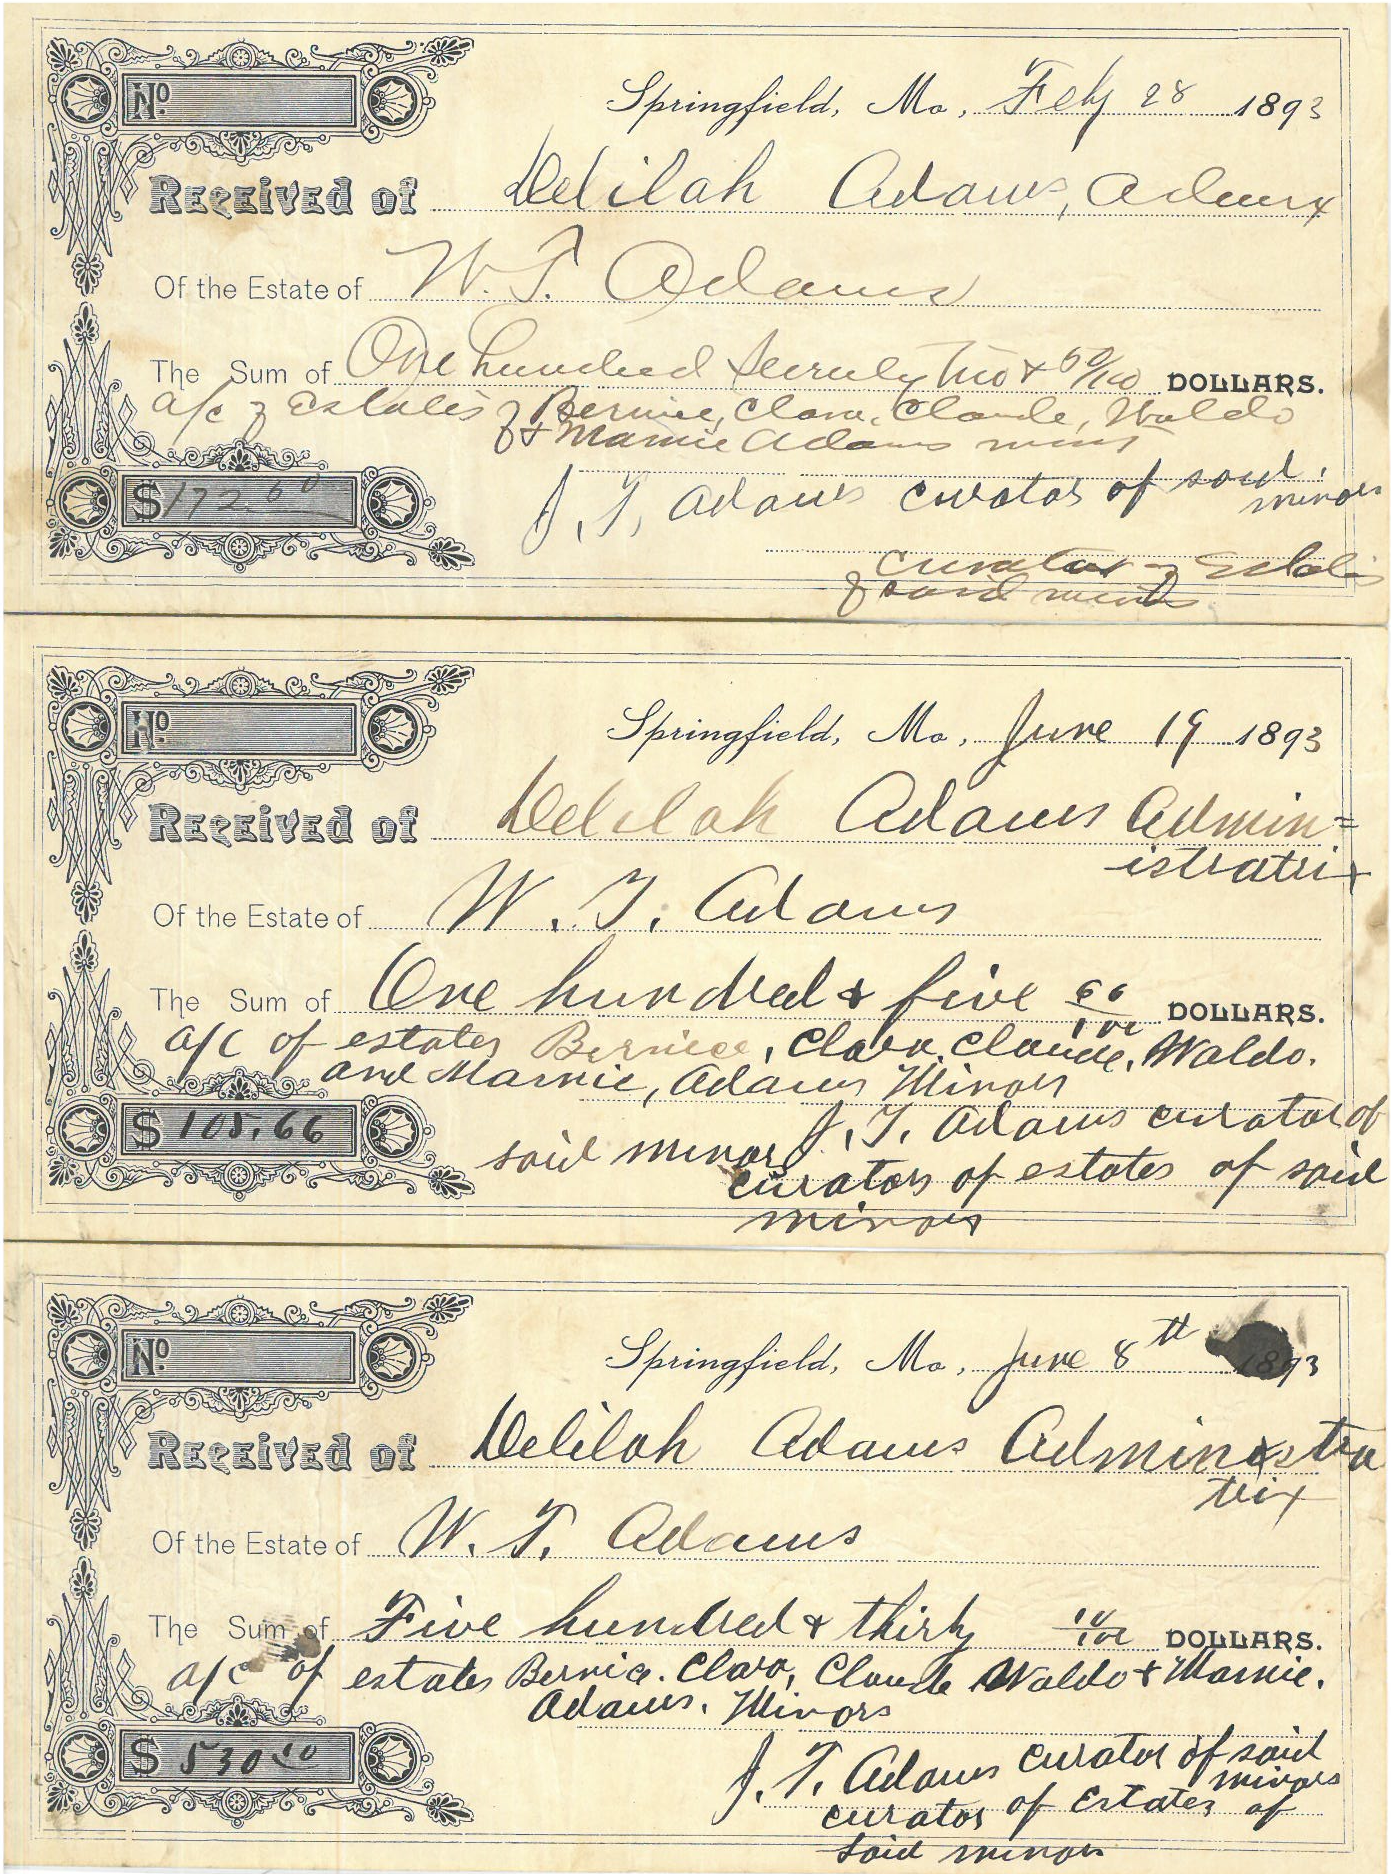 No
Springfield, Mo, Feby 28 1893
Received of Delilah Adams, Admrx
Of the Estate of W. T. Adams
The Sum of One hundred Seventy two & 60/100 DOLLARS.
a/c of Estates of Bernice, Clara, Claude, Waldo
& Mamie Adams minors
$172 60
J. T. Adams curator of said
minors
curator of Estates
of said minors
No
Springfield, Mo, June 19 1893
Received of Delilah Adams Admin=
istratrix
Of the Estate of W. T. Adams
The Sum of One hundred & five 66/100 DOLLARS.
a/c of estates Bernice, Clara, Claude, Waldo.
and Mamie, Adams Minors
$ 105.66
J. T. Adams curator of
said minor
curators of estates of said
minors
No
Springfield, Mo, June 8th 1893
Received of Delilah Adams Administra
trix
Of the Estate of W. T. Adams
The Sum of Five hundred & thirty 10/100 DOLLARS.
a/c of estates Bernice. Clara, Claude Waldo & Mamie.
Adams. Minors
$ 530 10
J. T. Adams curator of said
minors
curator of Estates of
said minors